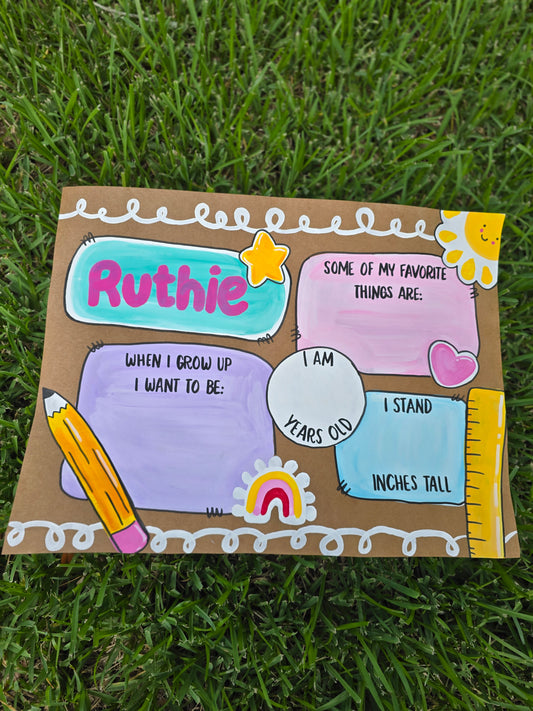 Ruthie
SOME OF MY FAVORITE
THINGS ARE:
WHEN I GROW UP
I WANT TO BE:
I AM
YEARS OLD
I STAND
INCHES TALL